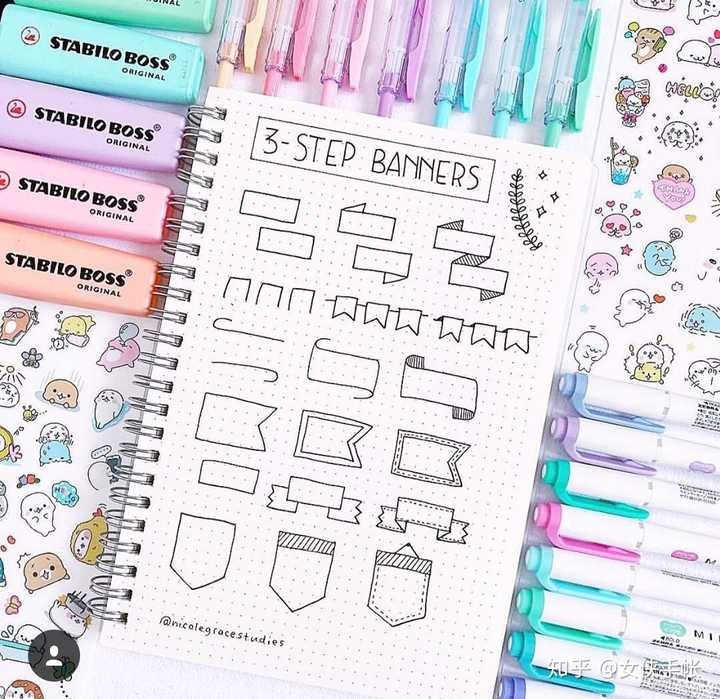 ORIGINAL
STABILO BOSS®
ORIGINAL
STABILO BOSS®
ORIGINAL
STABILO BOSS®
ORIGINAL
STABILO BOSS®
ORIGINAL
3-STEP BANNERS
HELLO
THANK
YOU
@nicolegracestudies
知乎 @女侠手帐